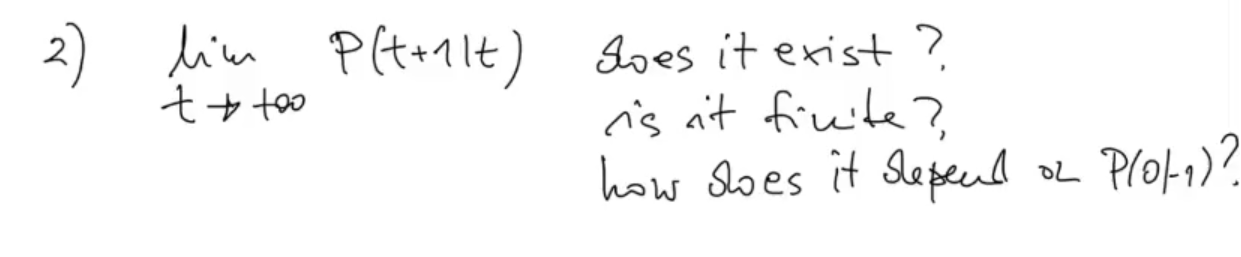 2) lim P(t+1|t) does it exist?
t→+∞ is it finite?
how does it depend on P(0|-1)?